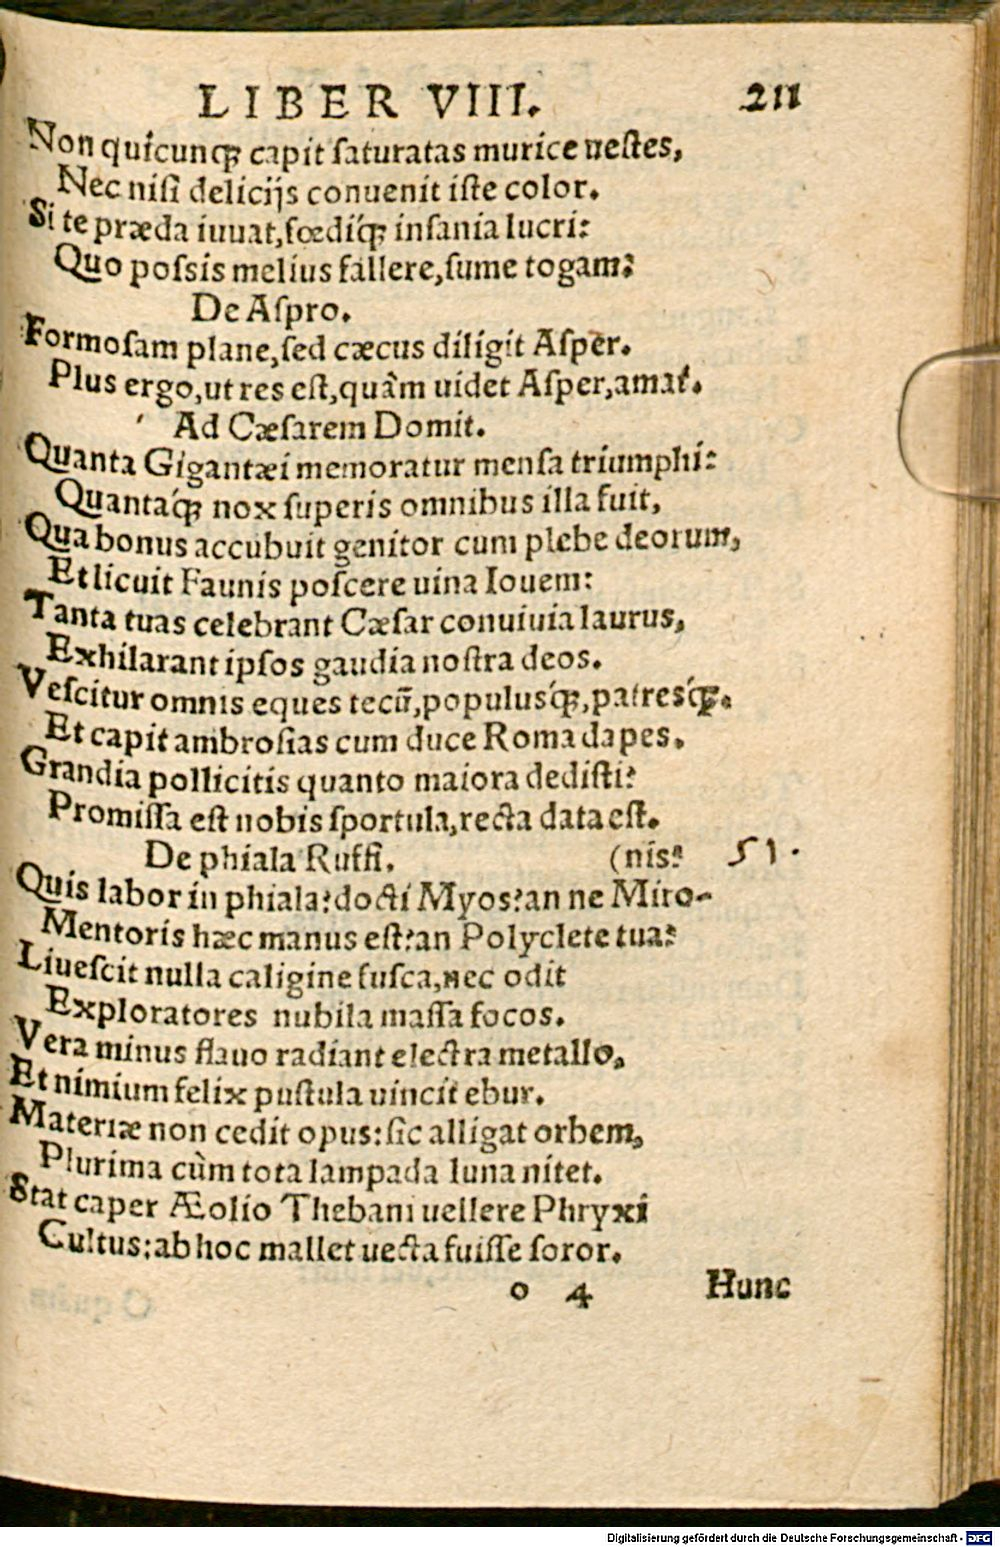 LIBER VIII. 211
Non quicunqꝫ capit saturatas murice uestes,
Nec nisi delicijs conuenit iste color.
Si te præda iuuat, fœdíqꝫ insania lucri:
Quo possis melius fallere, sume togam?
De Aspro.
Formosam plane, sed cæcus diligit Asper.
Plus ergo, ut res est, quàm uidet Asper, amat.
Ad Cæsarem Domit.
Quanta Gigantæi memoratur mensa triumphi:
Quantáqꝫ nox superis omnibus illa fuit,
Qua bonus accubuit genitor cum plebe deorum,
Et licuit Faunis poscere uina Iouem:
Tanta tuas celebrant Cæsar conuiuia laurus,
Exhilarant ipsos gaudia nostra deos.
Vescitur omnis eques tecū, populusq́ꝫ, patresq́ꝫ.
Et capit ambrosias cum duce Roma dapes.
Grandia pollicitis quanto maiora dedisti?
Promissa est nobis sportula, recta data est.
De phiala Ruffi. (nis? 51.
Quis labor in phiala? docti Myos? an ne Miro-
Mentoris hæc manus est? an Polyclete tua?
Liuescit nulla caligine fusca, nec odit
Exploratores nubila massa focos.
Vera minus flauo radiant electra metallo,
Et nimium felix pustula uincit ebur.
Materiæ non cedit opus: sic alligat orbem,
Plurima cùm tota lampada luna nitet.
Stat caper Æolio Thebani uellere Phryxi
Cultus: ab hoc mallet uecta fuisse soror.
o 4 Hunc
Digitalisierung gefördert durch die Deutsche Forschungsgemeinschaft - DFG